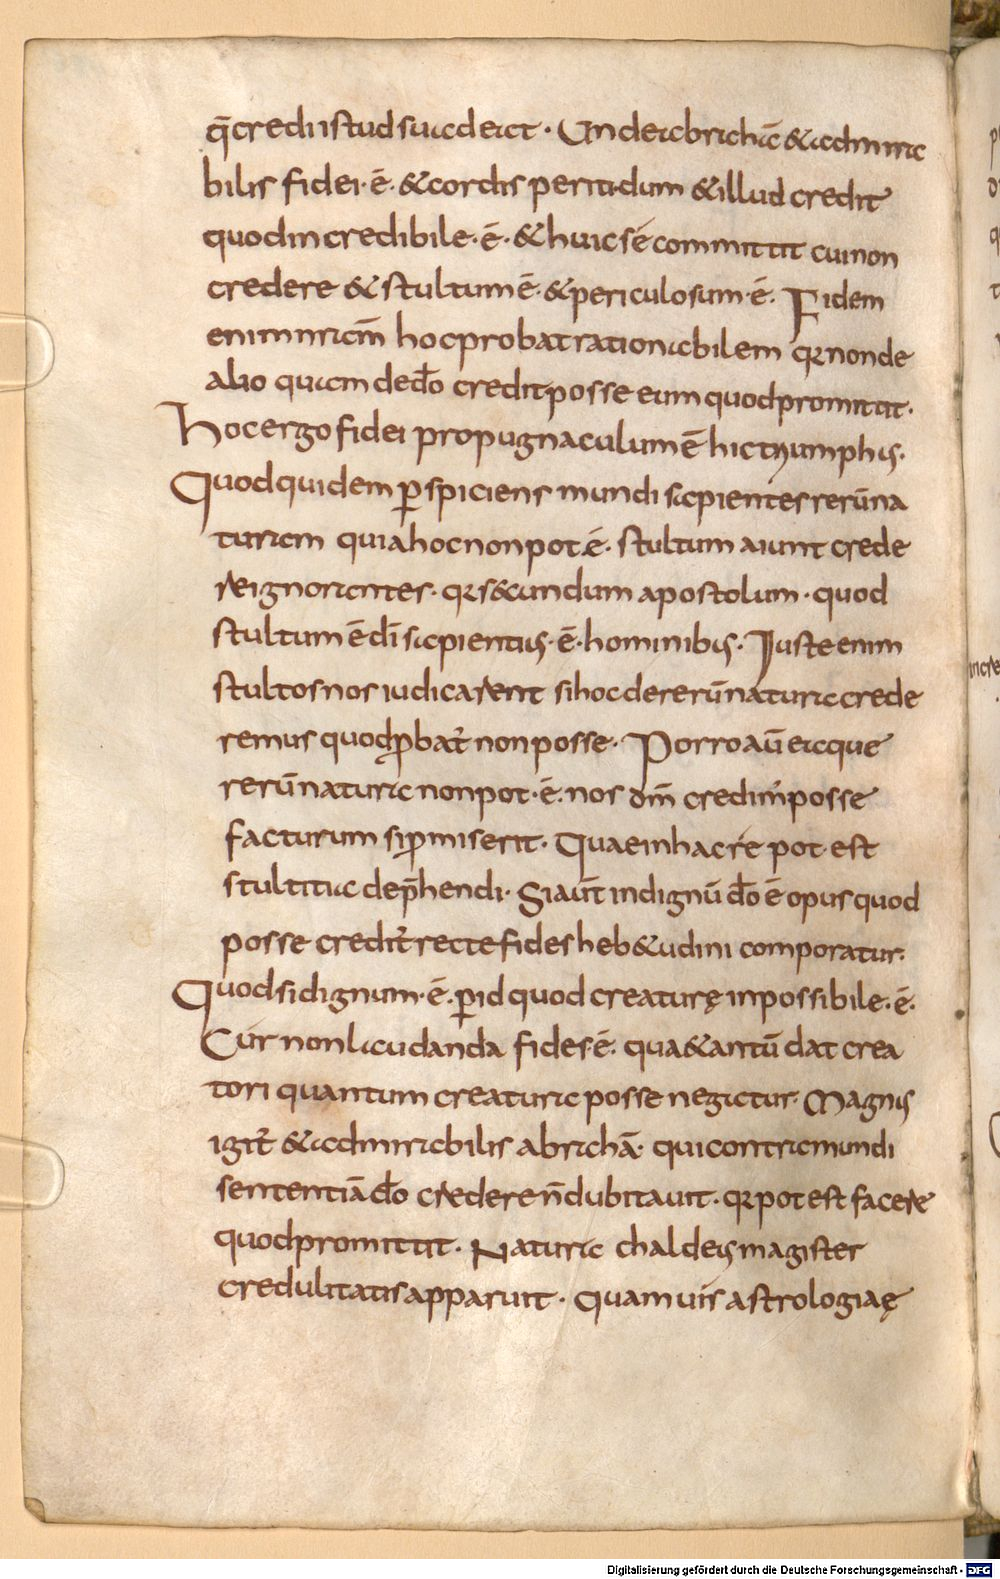 q̄ credi istud suadeat · Unde abrahā & admira
bilis fidei · ē · & cordis periti · dum & illud credit
quod incredibile · ē · & huic sé committit cui non
credere & stultum ē · & periculosum · ē · Fidem
enim nr̄am hoc probat rationabilem qr non de
alio quam de dō credit posse eum quod promittit ·
Hoc ergo fidei propugnaculum ē hic tryumphis ·
Quod quidem p̱spiciens mundi sapientes rerū na
turam quia hoc non pot · ē · stultum aiunt crede
re ignorantes · qr s&cundum apostolum · quod
stultum ē dī sapientius · ē · hominibus · Juste enim
stultos nos iudicarent si hoc de rerū natura crede
remus quod ꝓbat̄ non posse · Porro aū eaque
rerū natura non pot · ē · nos dm̄ credim̄ posse
facturum si ꝓmiserit · Quae in hac ré pot · est
stultitia dep̄hendi · Si aūt indignū dō ē opus quod
posse credit̄ recte fides heb&udini comporatur ·
Quod si dignum · ē · p̱ id quod creaturę inpossibile · ē ·
Cúr non laudanda fides · ē · qua & antū dat crea
tori quantum creaturae posse negatur · Magnus
igit̄ & admirabilis abrahā · qui contra mundi
sententiā dō credere n̄ dubitauit · qr pot est facere
quod promittit · Natura chaldeus magister
credulitatis apparuit · quamuis astrologiaę
Digitalisierung gefördert durch die Deutsche Forschungsgemeinschaft - DFG